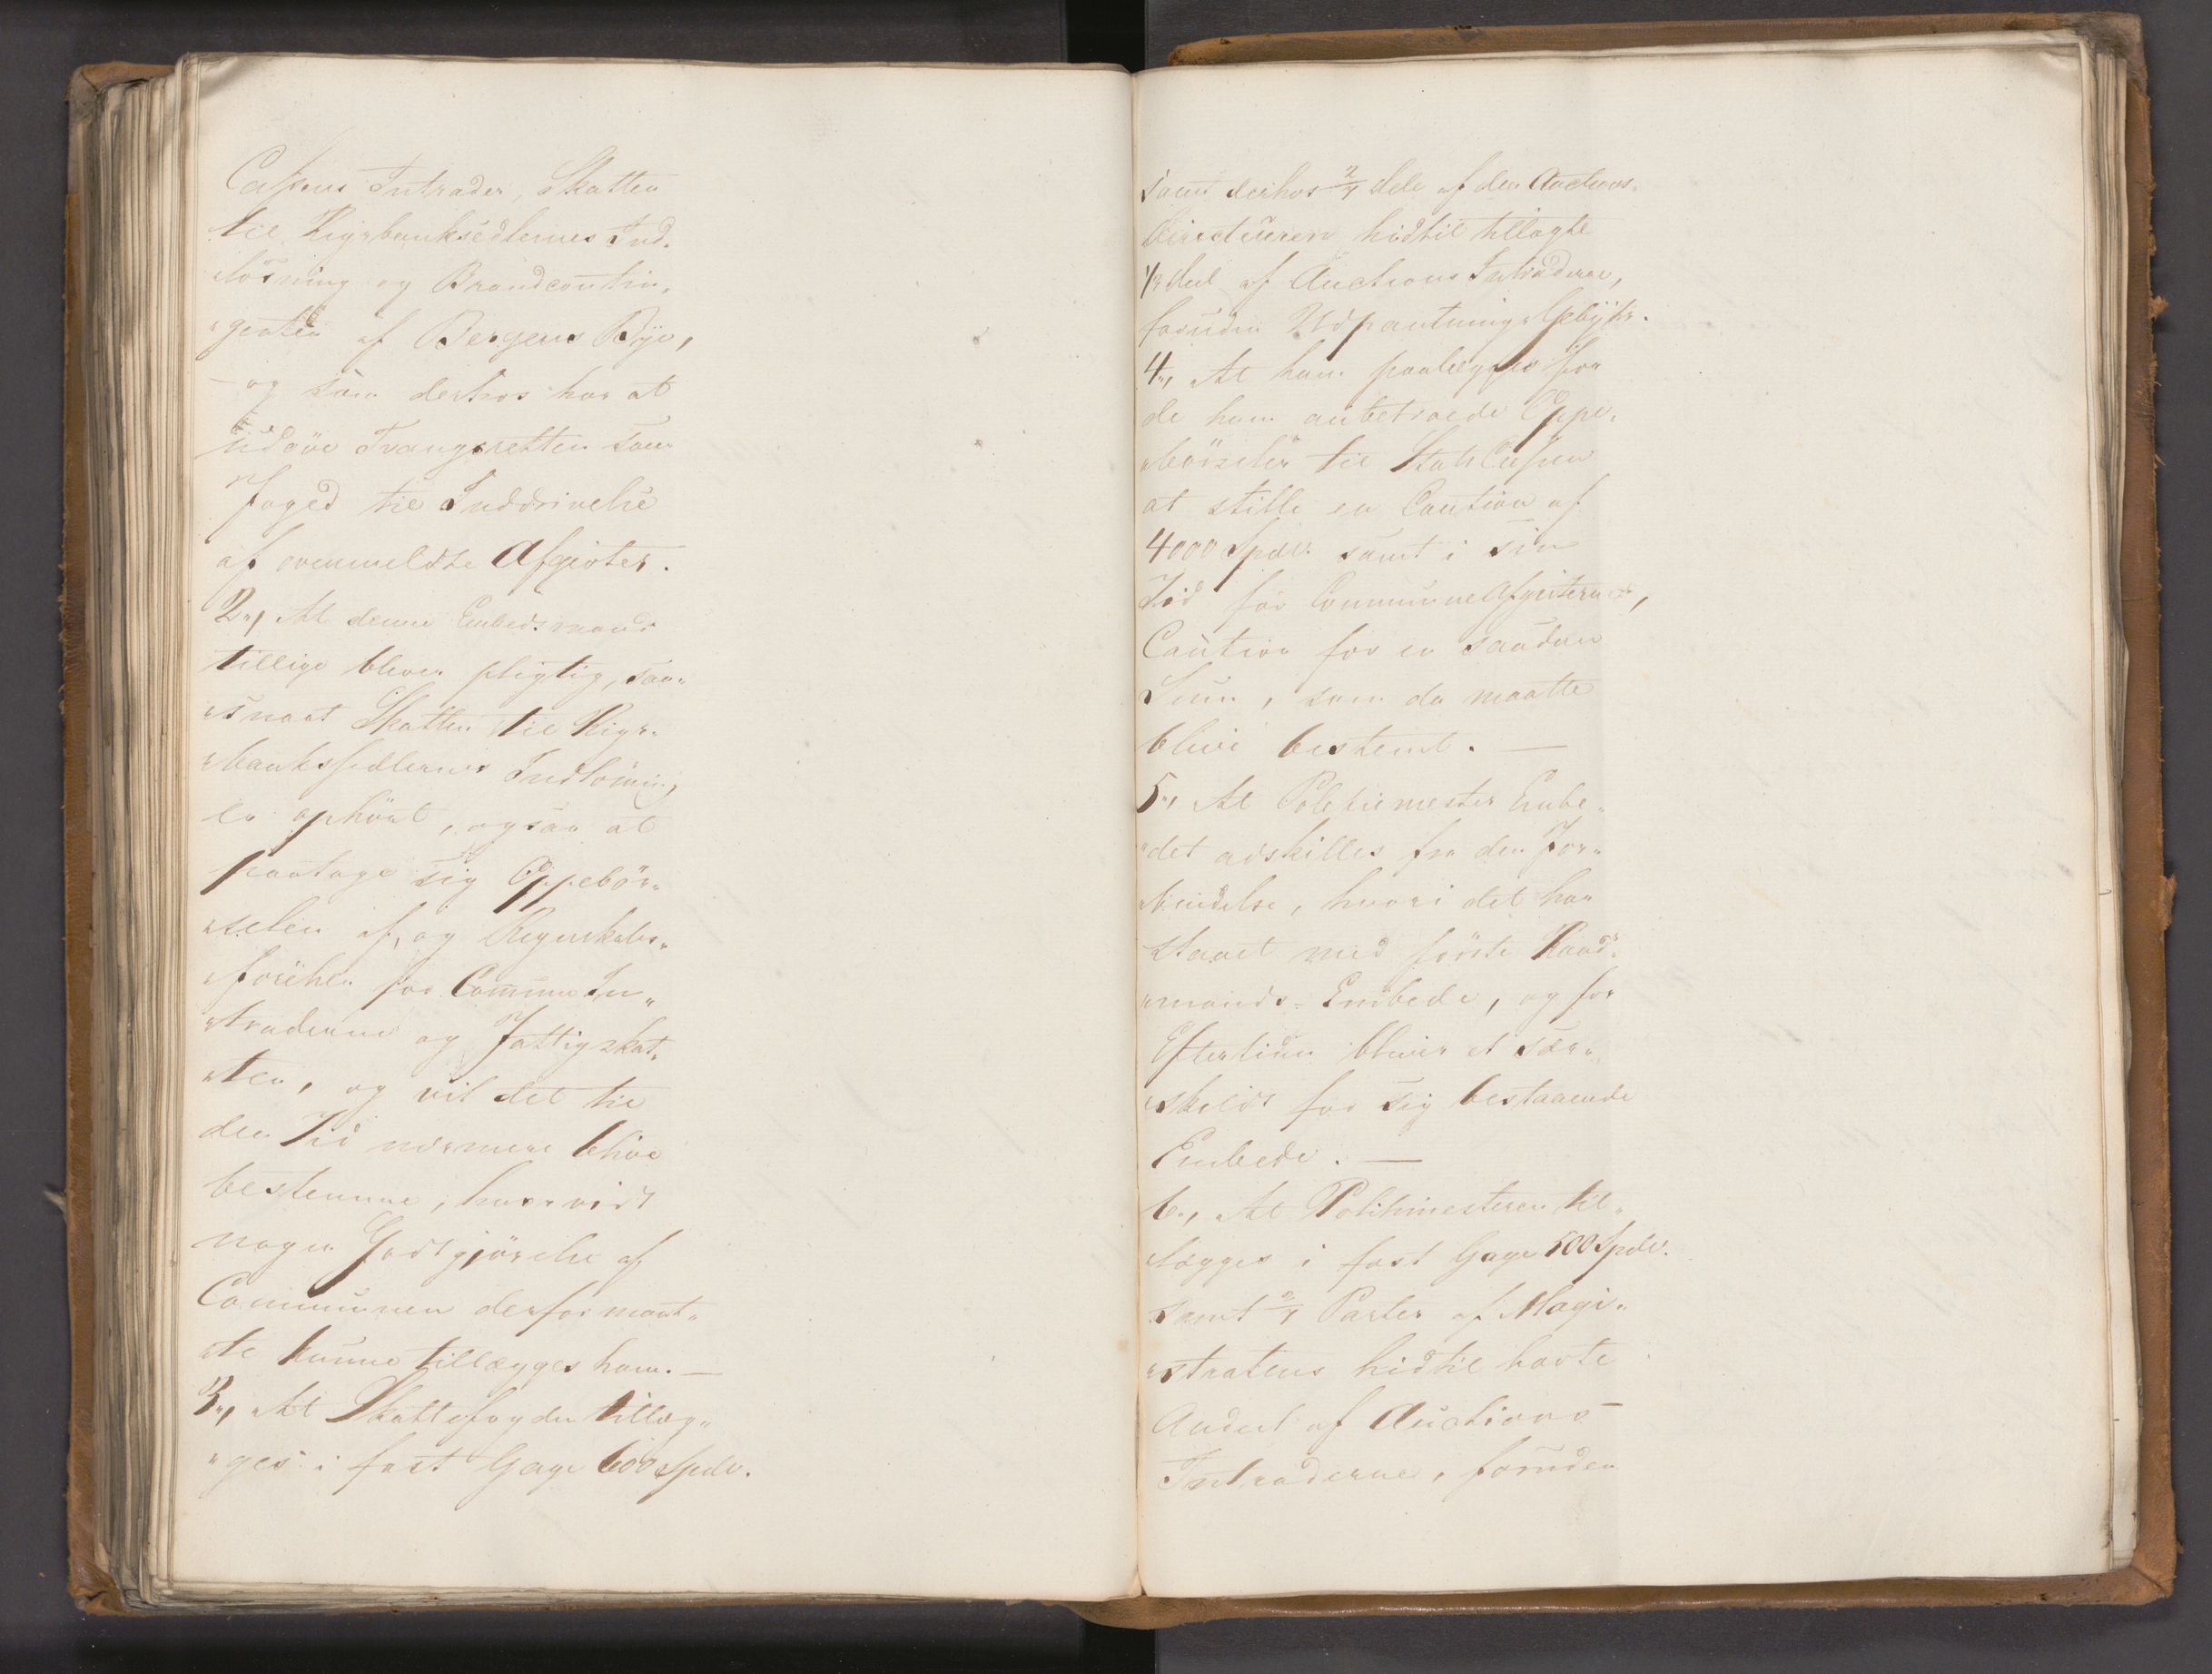 Cassens Intrader, Skatten
til Rigsbanksedlernes Ind„
„lösning og Brandcontin„
„genten af Bergens Bye,
og som derhos har at
udöve Tvangsretten som
Foged til Inddrivelse
af ovenmeldte Afgivter.
2„, At denne Embedsmand
tillige bliver pligtig, saa„
„snart Skatten til Rigs„
„bankssedlernes Indlösning
er ophört, ogsaa at
paatage sig Oppebör„
„selen af, og Regnskabs„
„förelsen for Commune In„
„traderne og Fattigskat„
„ten, og vil det til
den Tid nærmere blive
bestemme, hvorvidt
nogen Godtgjörelse af
Communen derfor maat„
„te kunne tillægges ham. —
3„, At Skattefogden tillæg„
„ges i fast Gage 600 Spdlr.
samt derhos 2/4 dele af den Auctions„
Directeuren hidtil tillagte
1/2 deel af Auctions Intraderne,
foruden Udpantnings Gebyhr.
4„, At ham paalægges for
de ham anbetroede Oppe„
„börseler til Stats Cassen
at stille en Caution af
4000 Spdlr. samt i sin
Tid for Communeafgivterne,
Caution for en saadan
Sum, som da maatte
blive bestemt. —
5„, At Politiemester Embe„
„det adskilles fra den For„
„bindelse, hvori det har
staaet med förste Raad„
„mands-Embede, og for
Eftertiden bliver et sær„
„skildt for sig bestaaende
Embede. —
6„, At Politimesteren til„
„lægges i fast Gage 500 Spdlr.
samt 2/4 Parter af Magi„
„stratens hidtil havte
Andeel af Auctions
Intraderne, foruden